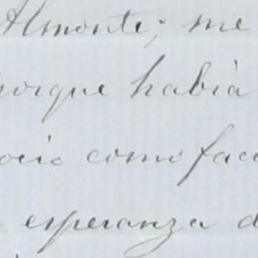 Almonte; me
porque habia
ocio como fac
esperanza d